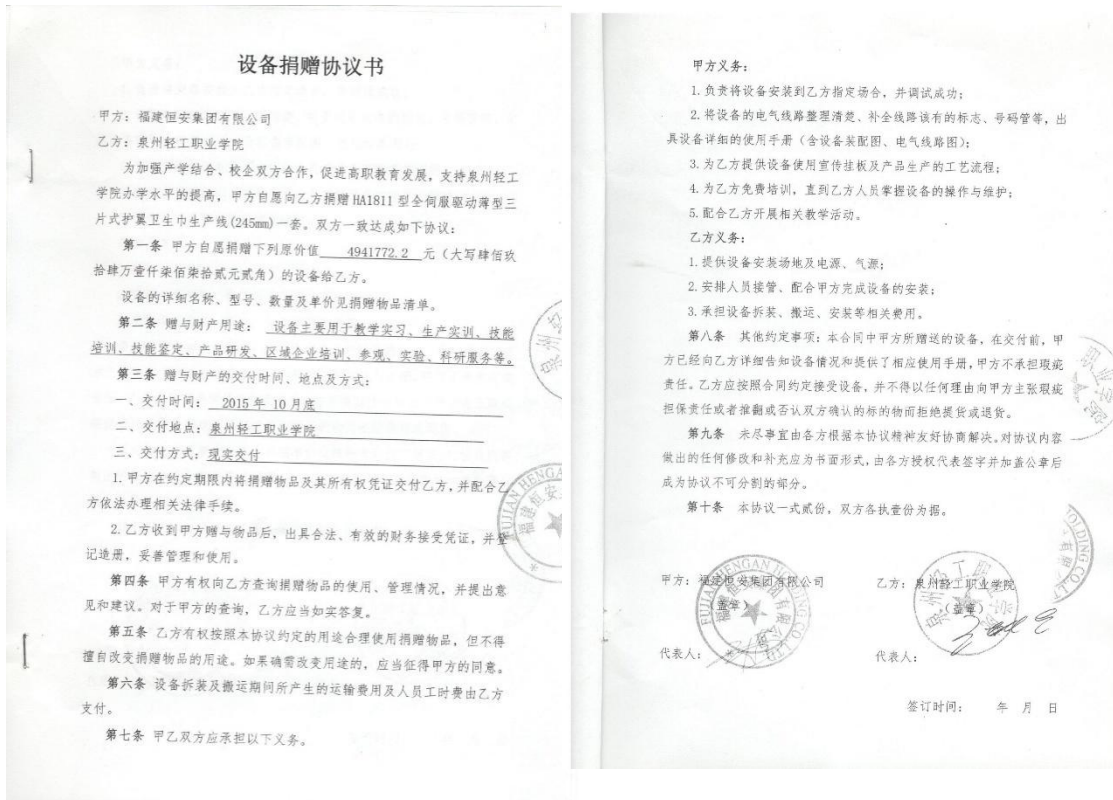 设备捐赠协议书
甲方：福建恒安集团有限公司
乙方：泉州轻工职业学院
为加强产学结合、校企双方合作，促进高职教育发展，支持泉州轻工
学院办学水平的提高，甲方自愿向乙方捐赠 HA1811 型全伺服驱动薄型三
片式护翼卫生巾生产线(245mm)一套。双方一致达成如下协议：
第一条 甲方自愿捐赠下列原价值 4941772.2 元（大写肆佰玖
拾肆万壹仟柒佰柒拾贰元贰角）的设备给乙方。
设备的详细名称、型号、数量及单价见捐赠物品清单。
第二条 赠与财产用途： 设备主要用于教学实习、生产实训、技能
培训、技能鉴定、产品研发、区域企业培训、参观、实验、科研服务等。
第三条 赠与财产的交付时间、地点及方式：
一、交付时间： 2015 年 10 月底
二、交付地点：泉州轻工职业学院
三、交付方式：现实交付
1.甲方在约定期限内将捐赠物品及其所有权凭证交付乙方，并配合乙
方依法办理相关法律手续。
2.乙方收到甲方赠与物品后，出具合法、有效的财务接受凭证，并登
记造册，妥善管理和使用。
第四条 甲方有权向乙方查询捐赠物品的使用、管理情况，并提出意
见和建议。对于甲方的查询，乙方应当如实答复。
第五条 乙方有权按照本协议约定的用途合理使用捐赠物品，但不得
擅自改变捐赠物品的用途。如果确需改变用途的，应当征得甲方的同意。
第六条 设备拆装及搬运期间所产生的运输费用及人员工时费由乙方
支付。
第七条 甲乙双方应承担以下义务。
甲方义务：
1.负责将设备安装到乙方指定场合，并调试成功；
2.将设备的电气线路整理清楚、补全线路该有的标志、号码管等，出
具设备详细的使用手册（含设备装配图、电气线路图）；
3.为乙方提供设备使用宣传挂板及产品生产的工艺流程；
4.为乙方免费培训，直到乙方人员掌握设备的操作与维护；
5.配合乙方开展相关教学活动。
乙方义务：
1.提供设备安装场地及电源、气源；
2.安排人员接管、配合甲方完成设备的安装；
3.承担设备拆装、搬运、安装等相关费用。
第八条 其他约定事项：本合同中甲方所赠送的设备，在交付前，甲
方已经向乙方详细告知设备情况和提供了相应使用手册，甲方不承担瑕疵
责任。乙方应按照合同约定接受设备，并不得以任何理由向甲方主张瑕疵
担保责任或者推翻或否认双方确认的标的物而拒绝提货或退货。
第九条 未尽事宜由各方根据本协议精神友好协商解决。对协议内容
做出的任何修改和补充应为书面形式，由各方授权代表签字并加盖公章后
成为协议不可分割的部分。
第十条 本协议一式贰份，双方各执壹份为据。
甲方：福建恒安集团有限公司
（盖章）
代表人：
乙方：泉州轻工职业学院
（盖章）
代表人：
签订时间： 年 月 日